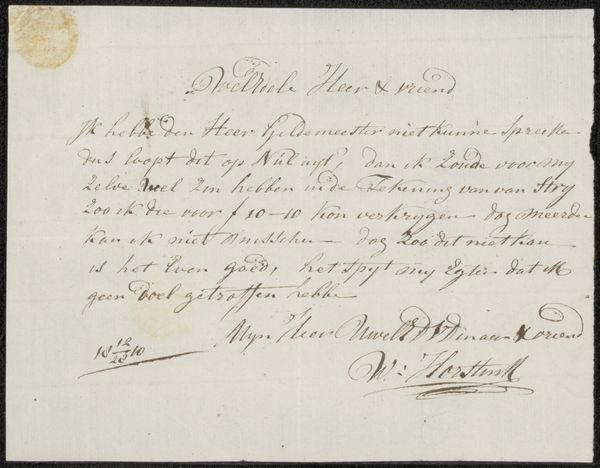 WelEdele Heer & vriend
Ik hebbe den Heer Gildemeester niet kunne Spreeke
dus loopt dit op Nul uyt, dan ik Zoude voor my
Zelve wel Zin hebben in de Tekening van van Stry
Zoo ik die voor f 10-10 kon verkrygen dog meerder
kan ik niet dog Zoo dit niet kan
is het Even goed, het Spyt my Egter dat ik
geen doel getroffen hebbe
Myn Heer UwelED DWDinaar & vriend
18 12/23 10
W: Horstink